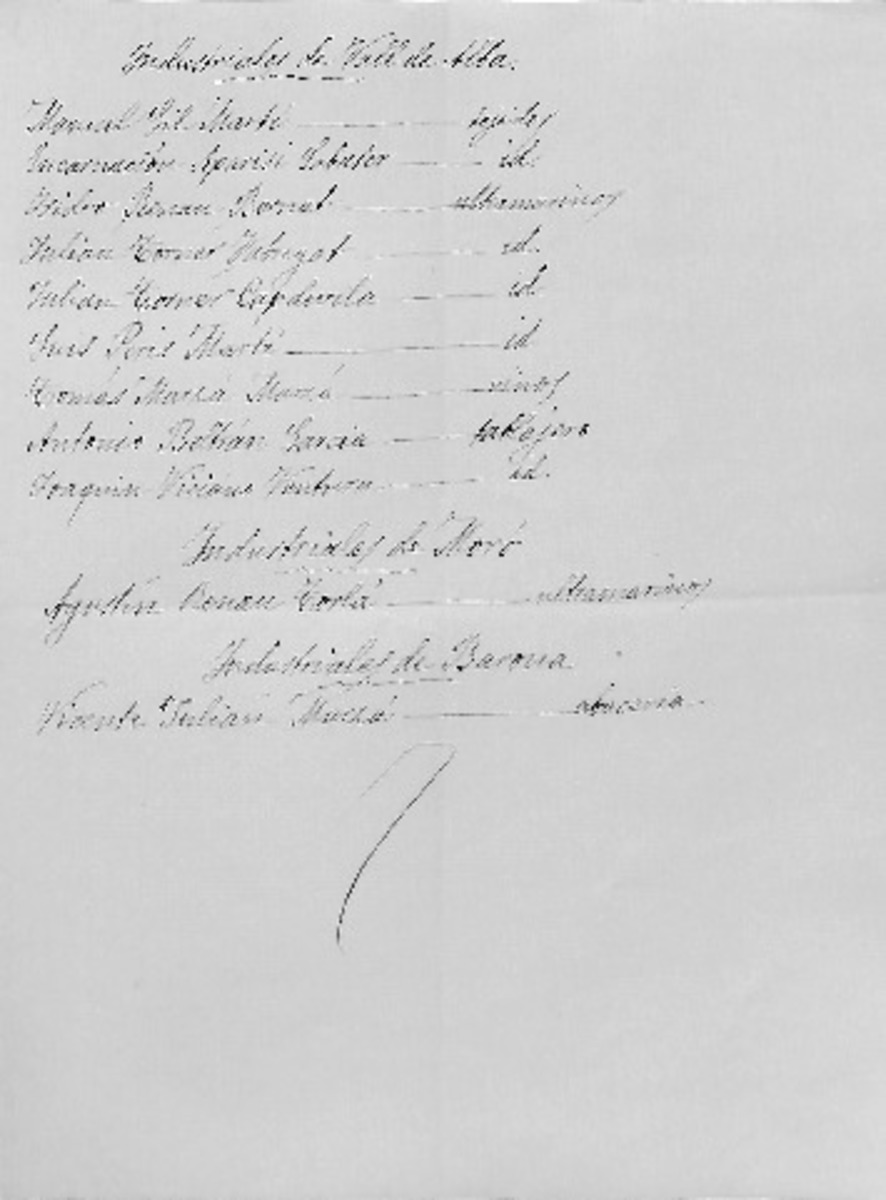 Industriales de Vall de Alba.
Manuel Gil Martí — tejidos
Encarnación Aparisi Sabater — id.
Isidro Renau Bernat — ultramarinos
Julian Torner Fabregat — id.
Julian Torner Capdevila — id
Luis Peris Martí — id
Tomás Mallá — vinos
Antonio Beltrán Garcia — tablajero
Joaquin Viciano Ventura — id.
Industriales de Moró
Agustín Renau — ultramarinos
Industriales de Barona
Vicente Julián — abacería